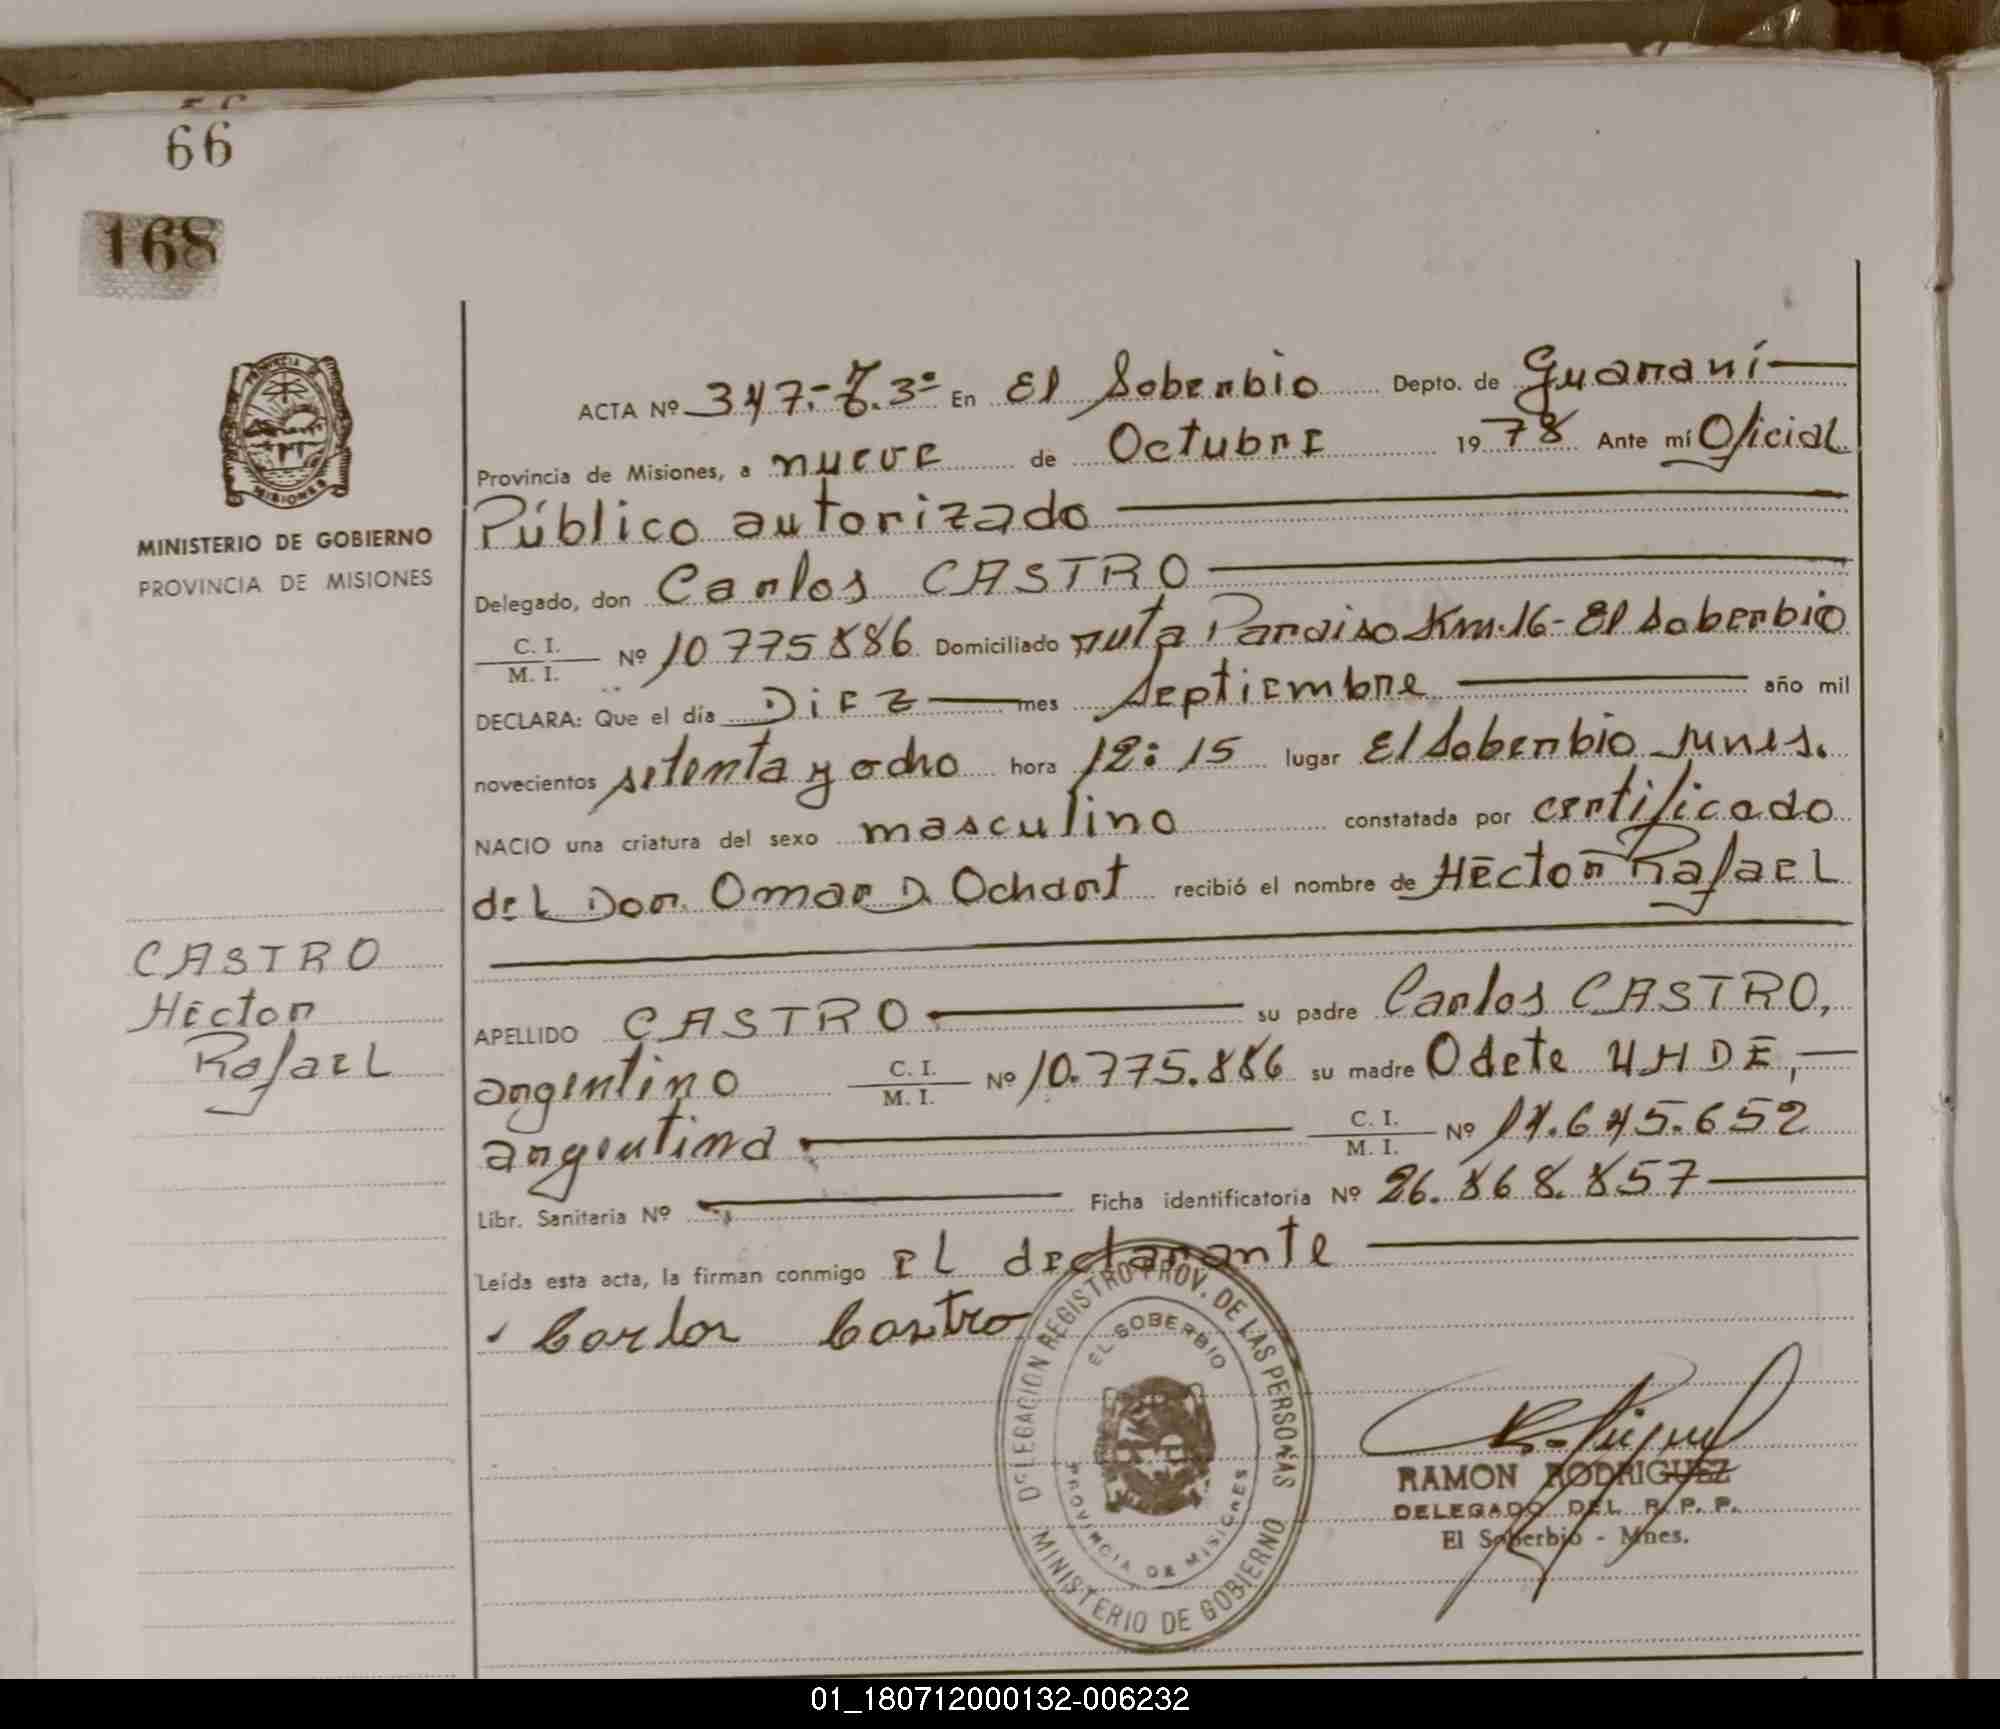 66
168
PROVINCIA DE MISIONES
MINISTERIO DE GOBIERNO
PROVINCIA DE MISIONES
CASTRO
Héctor
Rafael
ACTA Nº 347.- T.3º En El Soberbio Depto. de Guaraní
Provincia de Misiones, a nueve de Octubre 1978 Ante mí Oficial
Público autorizado
Delegado, don Carlos CASTRO
C. I. / M. I. Nº 10775886 Domiciliado ruta Paraiso Km.16- El Soberbio
DECLARA: Que el día DiEZ mes Septiembre año mil
novecientos setenta y ocho hora 12:15 lugar El Soberbio
NACIO una criatura del sexo masculino constatada por certificado
del Dor. Omar D. Ochart recibió el nombre de Héctor Rafael
APELLIDO CASTRO su padre Carlos CASTRO,
argentino C. I. / M. I. Nº 10.775.886 su madre Odete UHDE,
argentina C. I. / M. I. Nº 11.645.652
Libr. Sanitaria Nº Ficha identificatoria Nº 26.868.857
Leída esta acta, la firman conmigo el declarante
Carlos Castro
DELEGACION REGISTRO PROV. DE LAS PERSONAS
EL SOBERBIO
PROVINCIA DE MISIONES
MINISTERIO DE GOBIERNO
RAMON RODRIGUEZ
DELEGADO DEL R. P. P.
El Soberbio - Mnes.
01_180712000132-006232